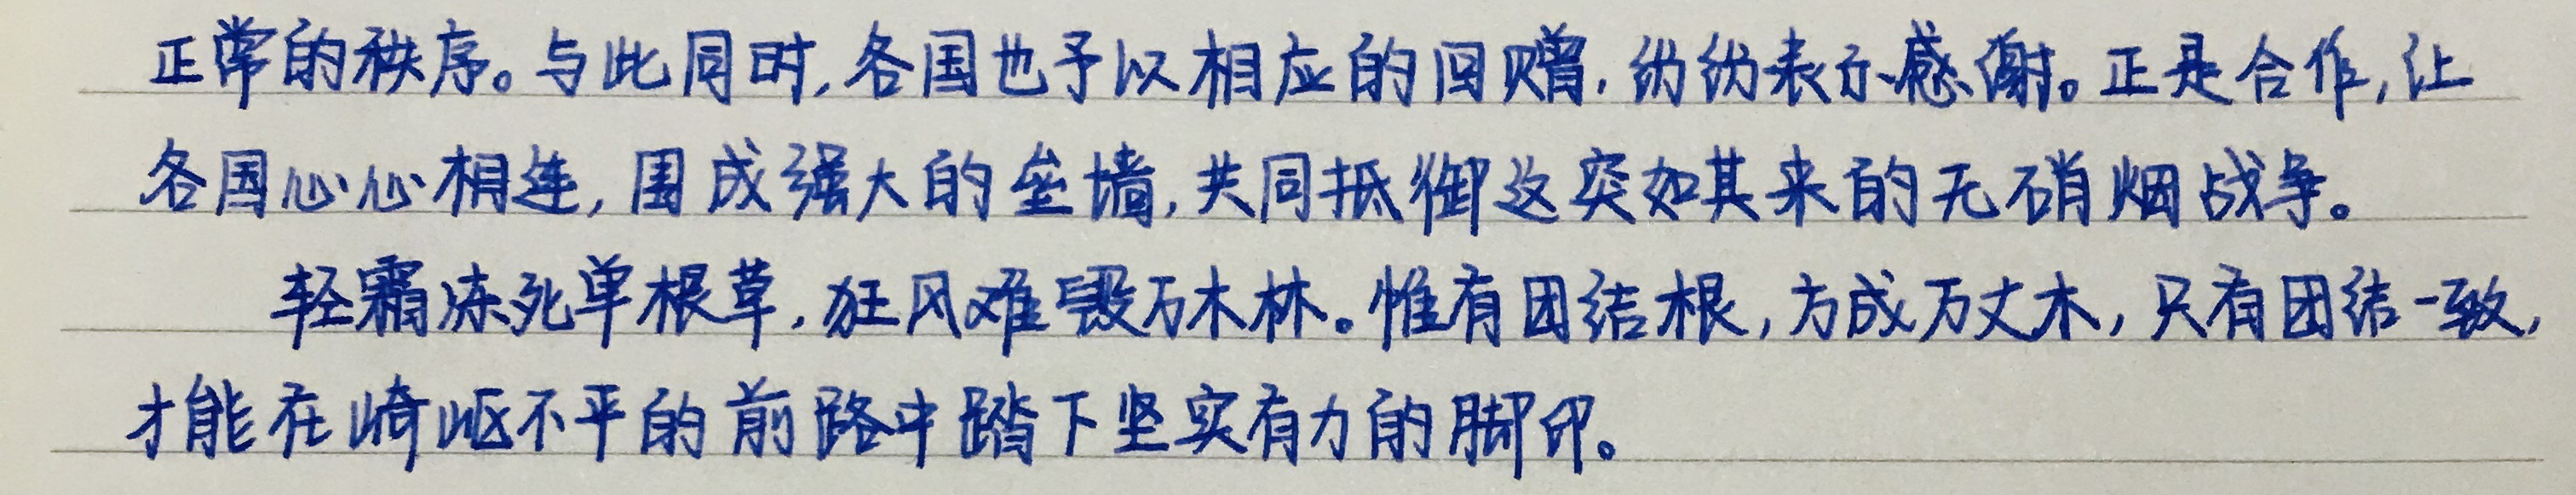 正常的秩序。与此同时,各国也予以相应的回赠,纷纷表示感谢。正是合作,让
各国心心相连,围成强大的垒墙,共同抵御这突如其来的无硝烟战争。
轻霜冻死单根草,狂风难毁万木林。惟有团结根,方成万丈木,只有团结一致,
才能在崎岖不平的前路中踏下坚实有力的脚印。